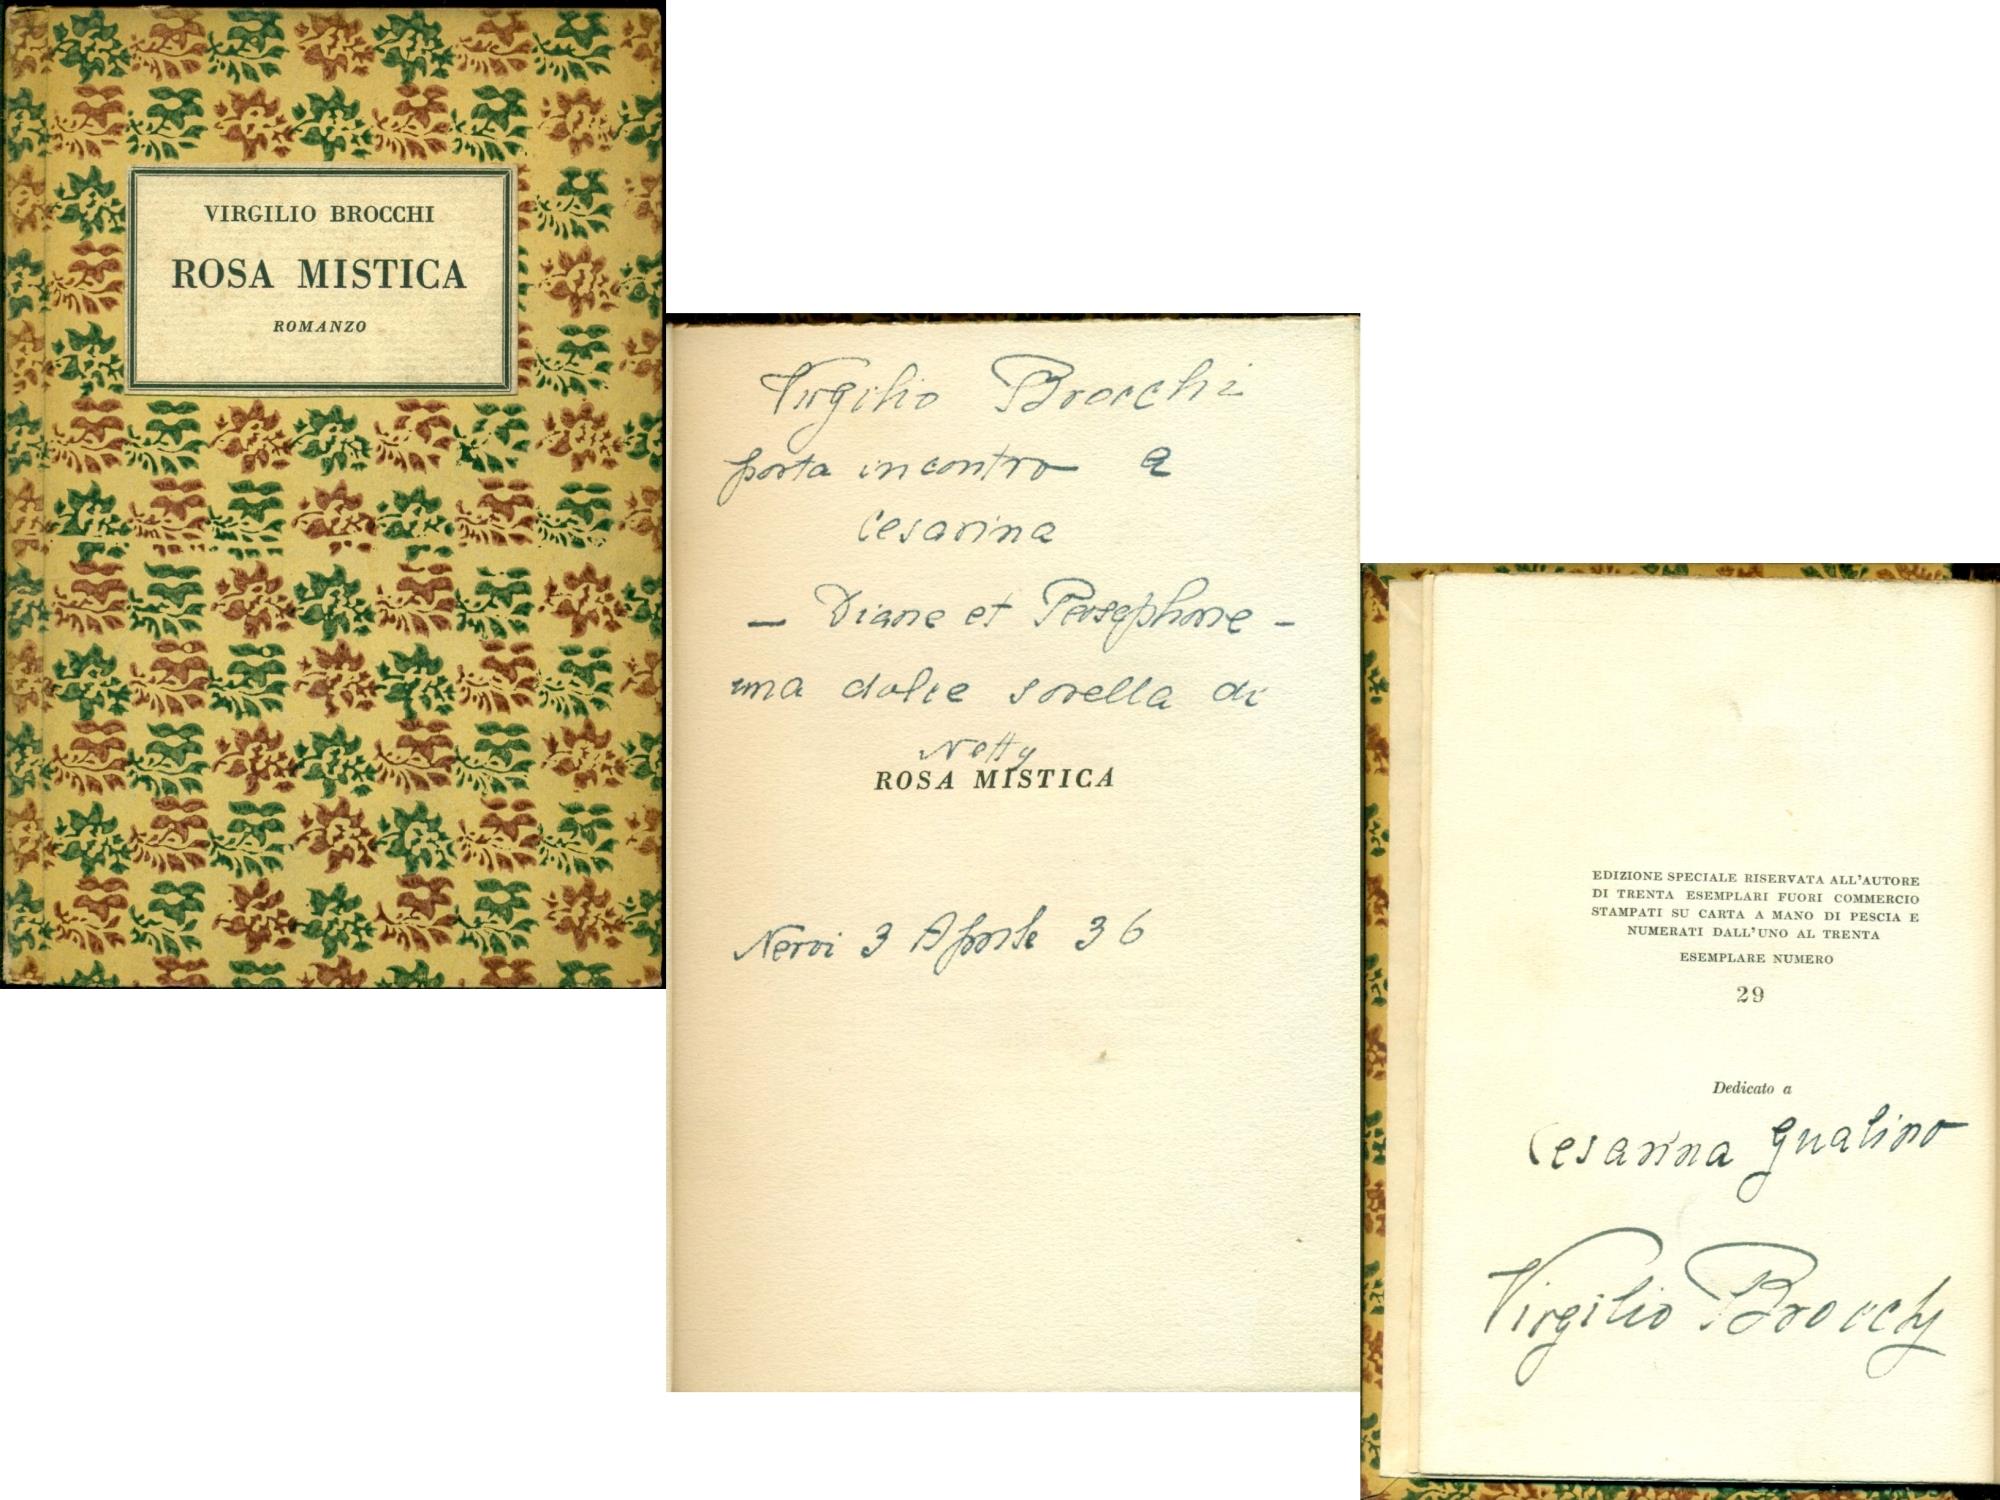 VIRGILIO BROCCHI
ROSA MISTICA
ROMANZO
Virgilio Brocchi
porta incontro a
Cesarina
- Diane et Persephone -
una dolce sorella di
Netty
ROSA MISTICA
Nervi 3 Aprile 36
EDIZIONE SPECIALE RISERVATA ALL'AUTORE
DI TRENTA ESEMPLARI FUORI COMMERCIO
STAMPATI SU CARTA A MANO DI PESCIA E
NUMERATI DALL'UNO AL TRENTA
ESEMPLARE NUMERO
29
Dedicato a
Cesarina Gualino
Virgilio Brocchi